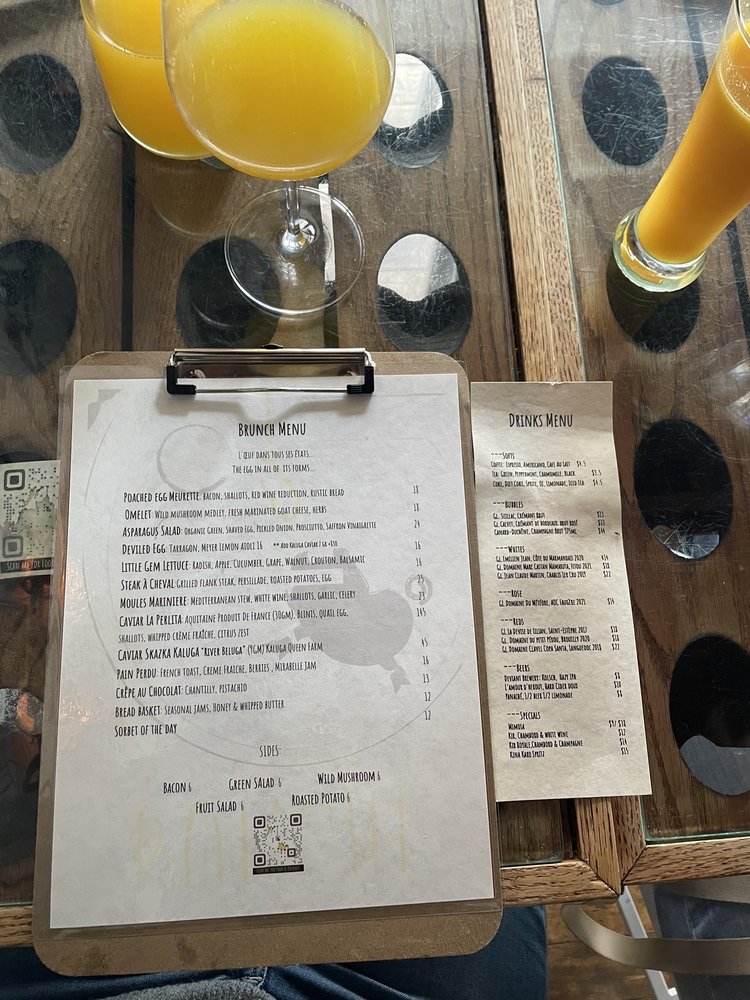 Brunch Menu
L'œuf dans tous ses états...
The egg in all of its forms...
Poached egg Meurette: bacon, shallots, red wine reduction, rustic bread 18
Omelet: Wild mushroom medley, fresh marinated goat cheese, herbs 18
Asparagus Salad: Organic Green, Shaved Egg, Pickled Onion, Prosciutto, Saffron Vinaigrette 24
Deviled Egg: Tarragon, Meyer Lemon aioli 16 ** Add Kaluga Caviar 7 gr +$10 16
Little Gem Lettuce: Radish, Apple, Cucumber, Grape, Walnut, Crouton, Balsamic 16
Steak à Cheval: Grilled flank steak, persillade, roasted potatoes, egg 25
Moules Mariniere: Mediterranean stew, white wine, shallots, garlic, celery 23
Caviar La Perlita: Aquitaine Produit De France (30gm), Blinis, quail egg, 145
shallots, whipped crème fraîche, citrus zest
Caviar Skazka Kaluga "River Beluga" (9gm) Kaluga Queen Farm 45
Pain Perdu: French toast, Creme Fraiche, Berries, Mirabelle Jam 16
Crêpe au Chocolat: Chantilly, pistachio 13
Bread Basket: Seasonal Jams, Honey & whipped butter 12
Sorbet of the day 12
Sides:
Bacon 6 Green Salad 6 Wild Mushroom 6
Fruit Salad 6 Roasted Potato 6
Drinks Menu
----Softs
Coffee: Espresso, Americano, Cafe au Lait $4.5
Tea: Green, Peppermint, Chamomile, Black $3.5
Coke, Diet Coke, Sprite, OJ, Lemonade, Iced Tea $4.5
----Bubbles
Gl Calvet, Crémant de Bordeaux brut rosé $13
Canard-Duchêne, Champagne Brut 375ml $44
----Whites
Gl Domaine Marc Castan Mamaruta, 2021 $18
Gl Jean Claude Martin, Chablis 1er Cru 2019 $22
----Rose
Gl Domaine Du Météore, AOC Faugère 2021 $14
----Reds
Gl La Devise de Lilian, Saint-Estèphe 2017 $18
Gl Domaine du petit Pérou, Brouilly 2020 $18
Gl Domaine Clavel Copa Santa, Languedoc 2018 $22
----Beers
Deviant Brewery: Kolsch, Hapy IPA $8
L'amour d'Hébout, Hard Cider doux $10
Panaché, 1/2 beer 1/2 lemonade $6
----Specials
Mimosa $9/ $18
Kir, Chambord & white wine $12
Kir Royale, Chambord & Champagne $14
Kina Karo Spritz $15
Scan me for food